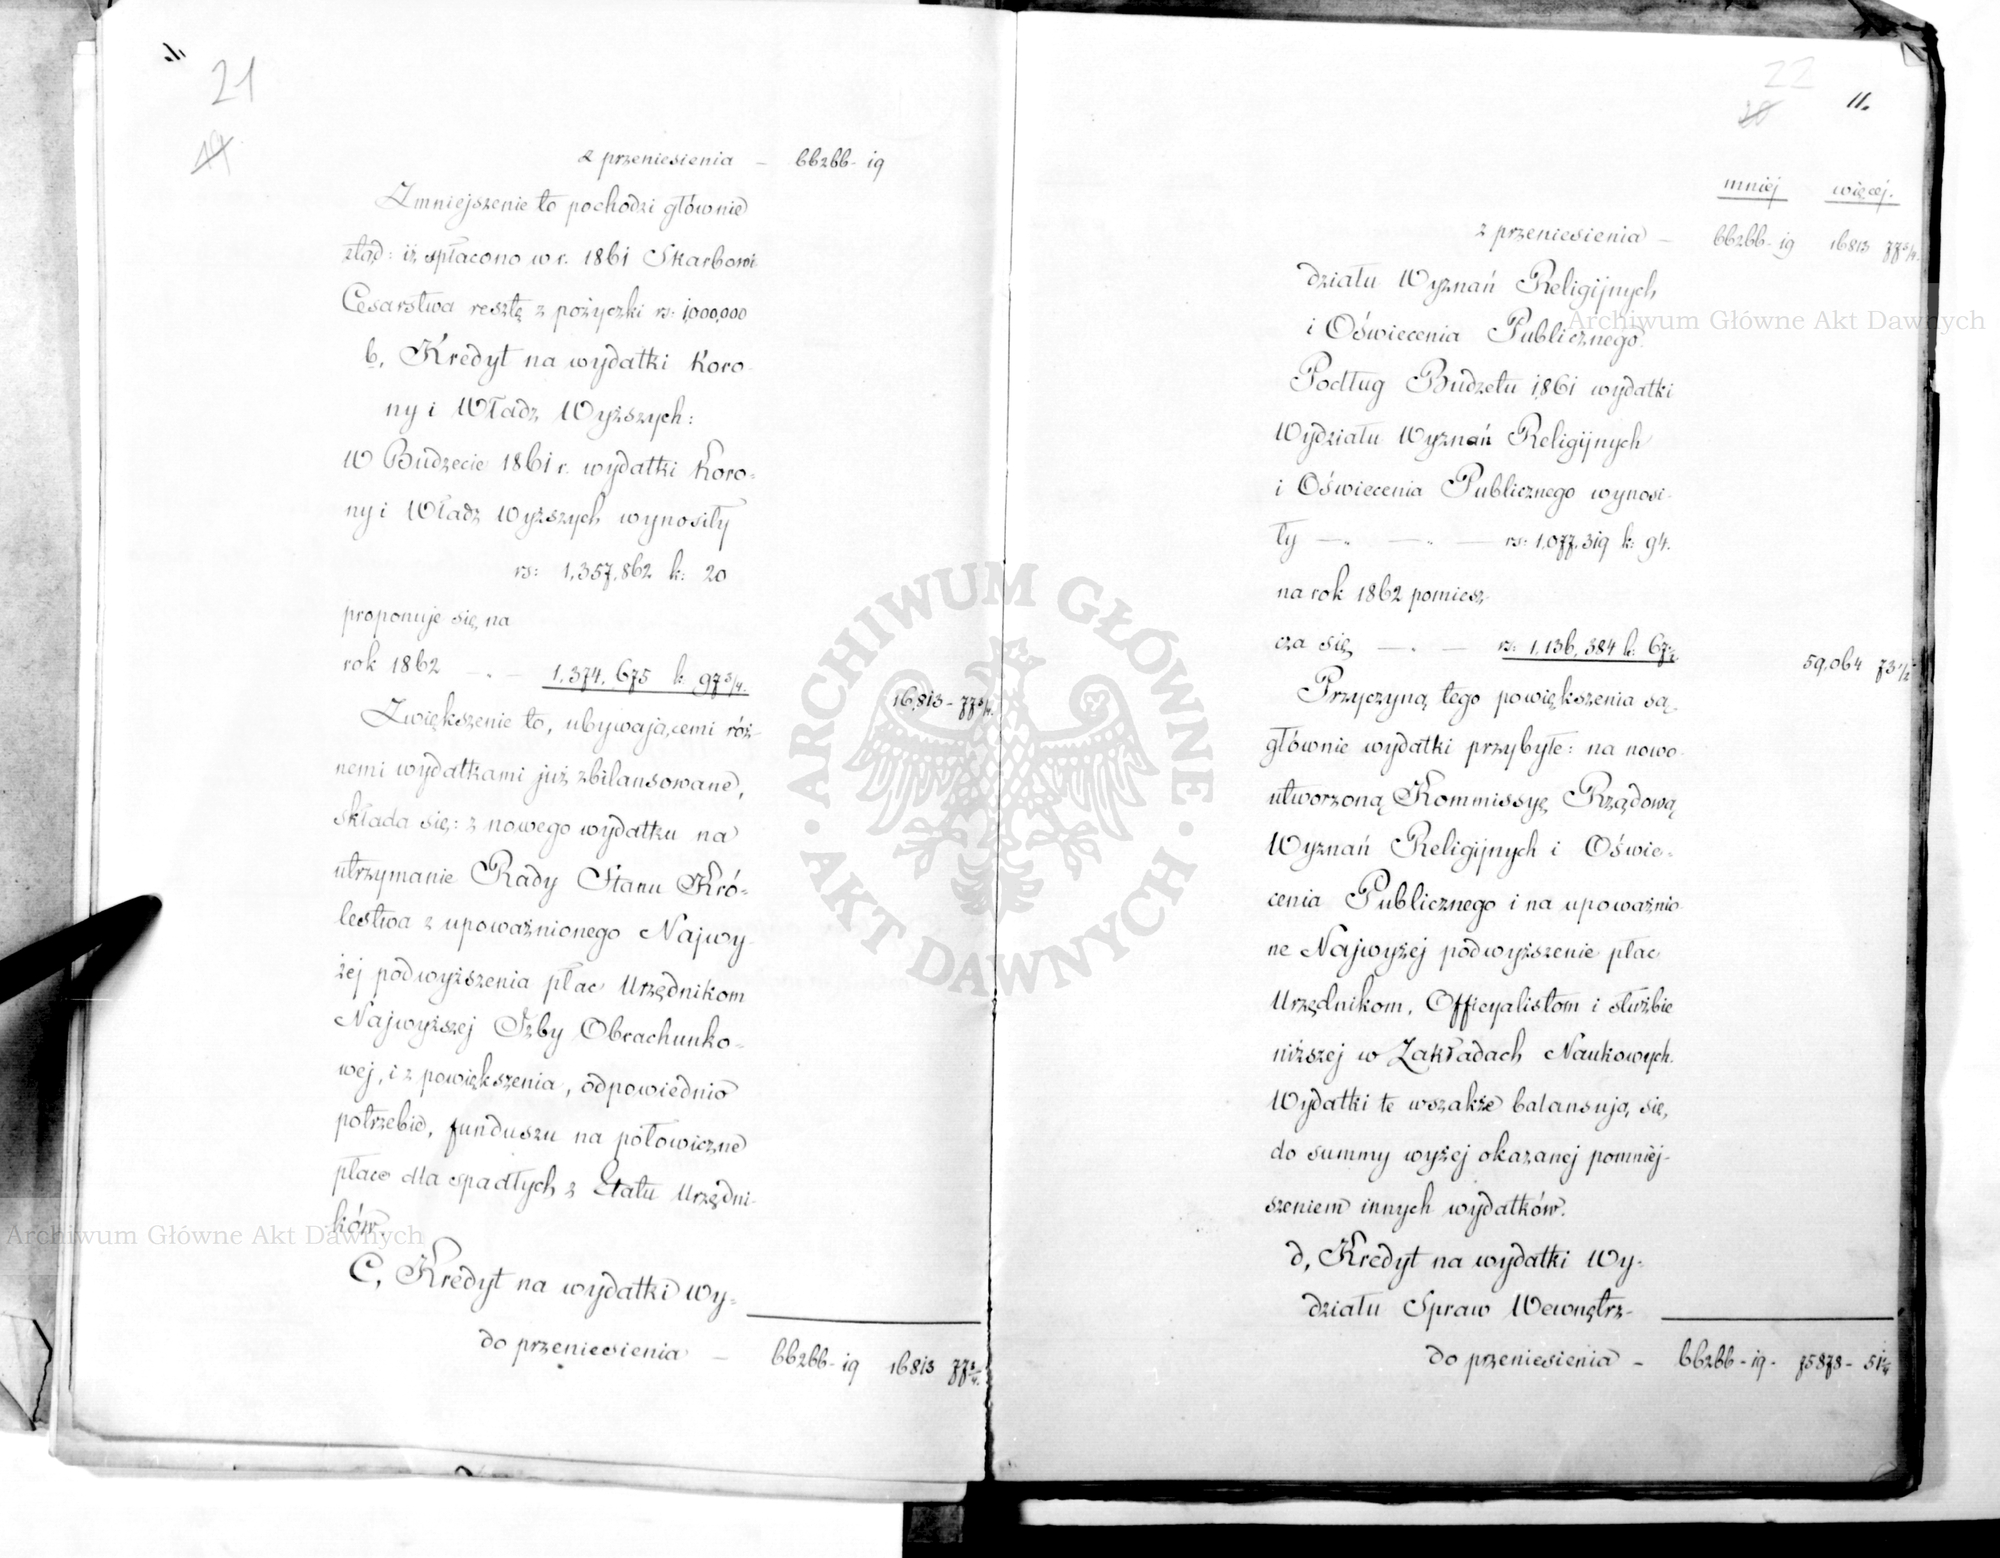 21
19
z przeniesienia — 66266 - 19
Zmniejszenie to pochodzi głównie
ztąd: iż spłacono w r. 1861 Skarbowi
Cesarstwa resztę z pożyczki rs: 1,000,000
b, Kredyt na wydatki Koro-
ny i Władz Wyższych:
W Budżecie 1861 r. wydatki Koro-
ny i Władz Wyższych wynosiły
rs: 1,357,862 k: 20
proponuje się na
rok 1862 — „ — 1,374,675 k 97 3/4.
16,813 - 77 3/4.
Zwiększenie to, ubywającemi róż-
nemi wydatkami już zbilansowane,
składa się: z nowego wydatku na
utrzymanie Rady Stanu Kró-
lestwa z upoważnionego Najwy-
żej podwyższenia płac Urzędnikom
Najwyższej Izby Obrachunko-
wej, i z powiększenia, odpowiednio
potrzebie, funduszu na połowiczne
płace dla spadłych z Etatu Urzędni-
ków.
C, Kredyt na wydatki Wy-
do przeniesienia — 66266 - 19 16813 77 3/4.
22
20
11.
mniej więcej.
z przeniesienia — 66266 - 19 16813 77 3/4.
działu Wyznań Religijnych
i Oświecenia Publicznego.
Podług Budżetu 1861 wydatki
Wydziału Wyznań Religijnych
i Oświecenia Publicznego wynosi-
ły — „ — „ — rs: 1,077,319 k: 94.
na rok 1862 pomiesz-
cza się — „ — rs: 1,136,384 k: 67 1/2
59,064 73 1/2
Przyczyną tego powiększenia są
głównie wydatki przybyłe: na nowo
utworzoną Kommissyę Rządową
Wyznań Religijnych i Oświe-
cenia Publicznego i na upoważnio-
ne Najwyżej podwyższenie płac
Urzędnikom, Officyalistom i służbie
niższej w Zakładach Naukowych.
Wydatki te wszakże balansują się,
do summy wyżej okazanej pomniej-
szeniem innych wydatków.
d, Kredyt na wydatki Wy-
działu Spraw Wewnętrz-
do przeniesienia — 66266 - 19 - 75878 - 51 1/4
ARCHIWUM GŁÓWNE
AKT DAWNYCH
Archiwum Główne Akt Dawnych
Archiwum Główne Akt Dawnych